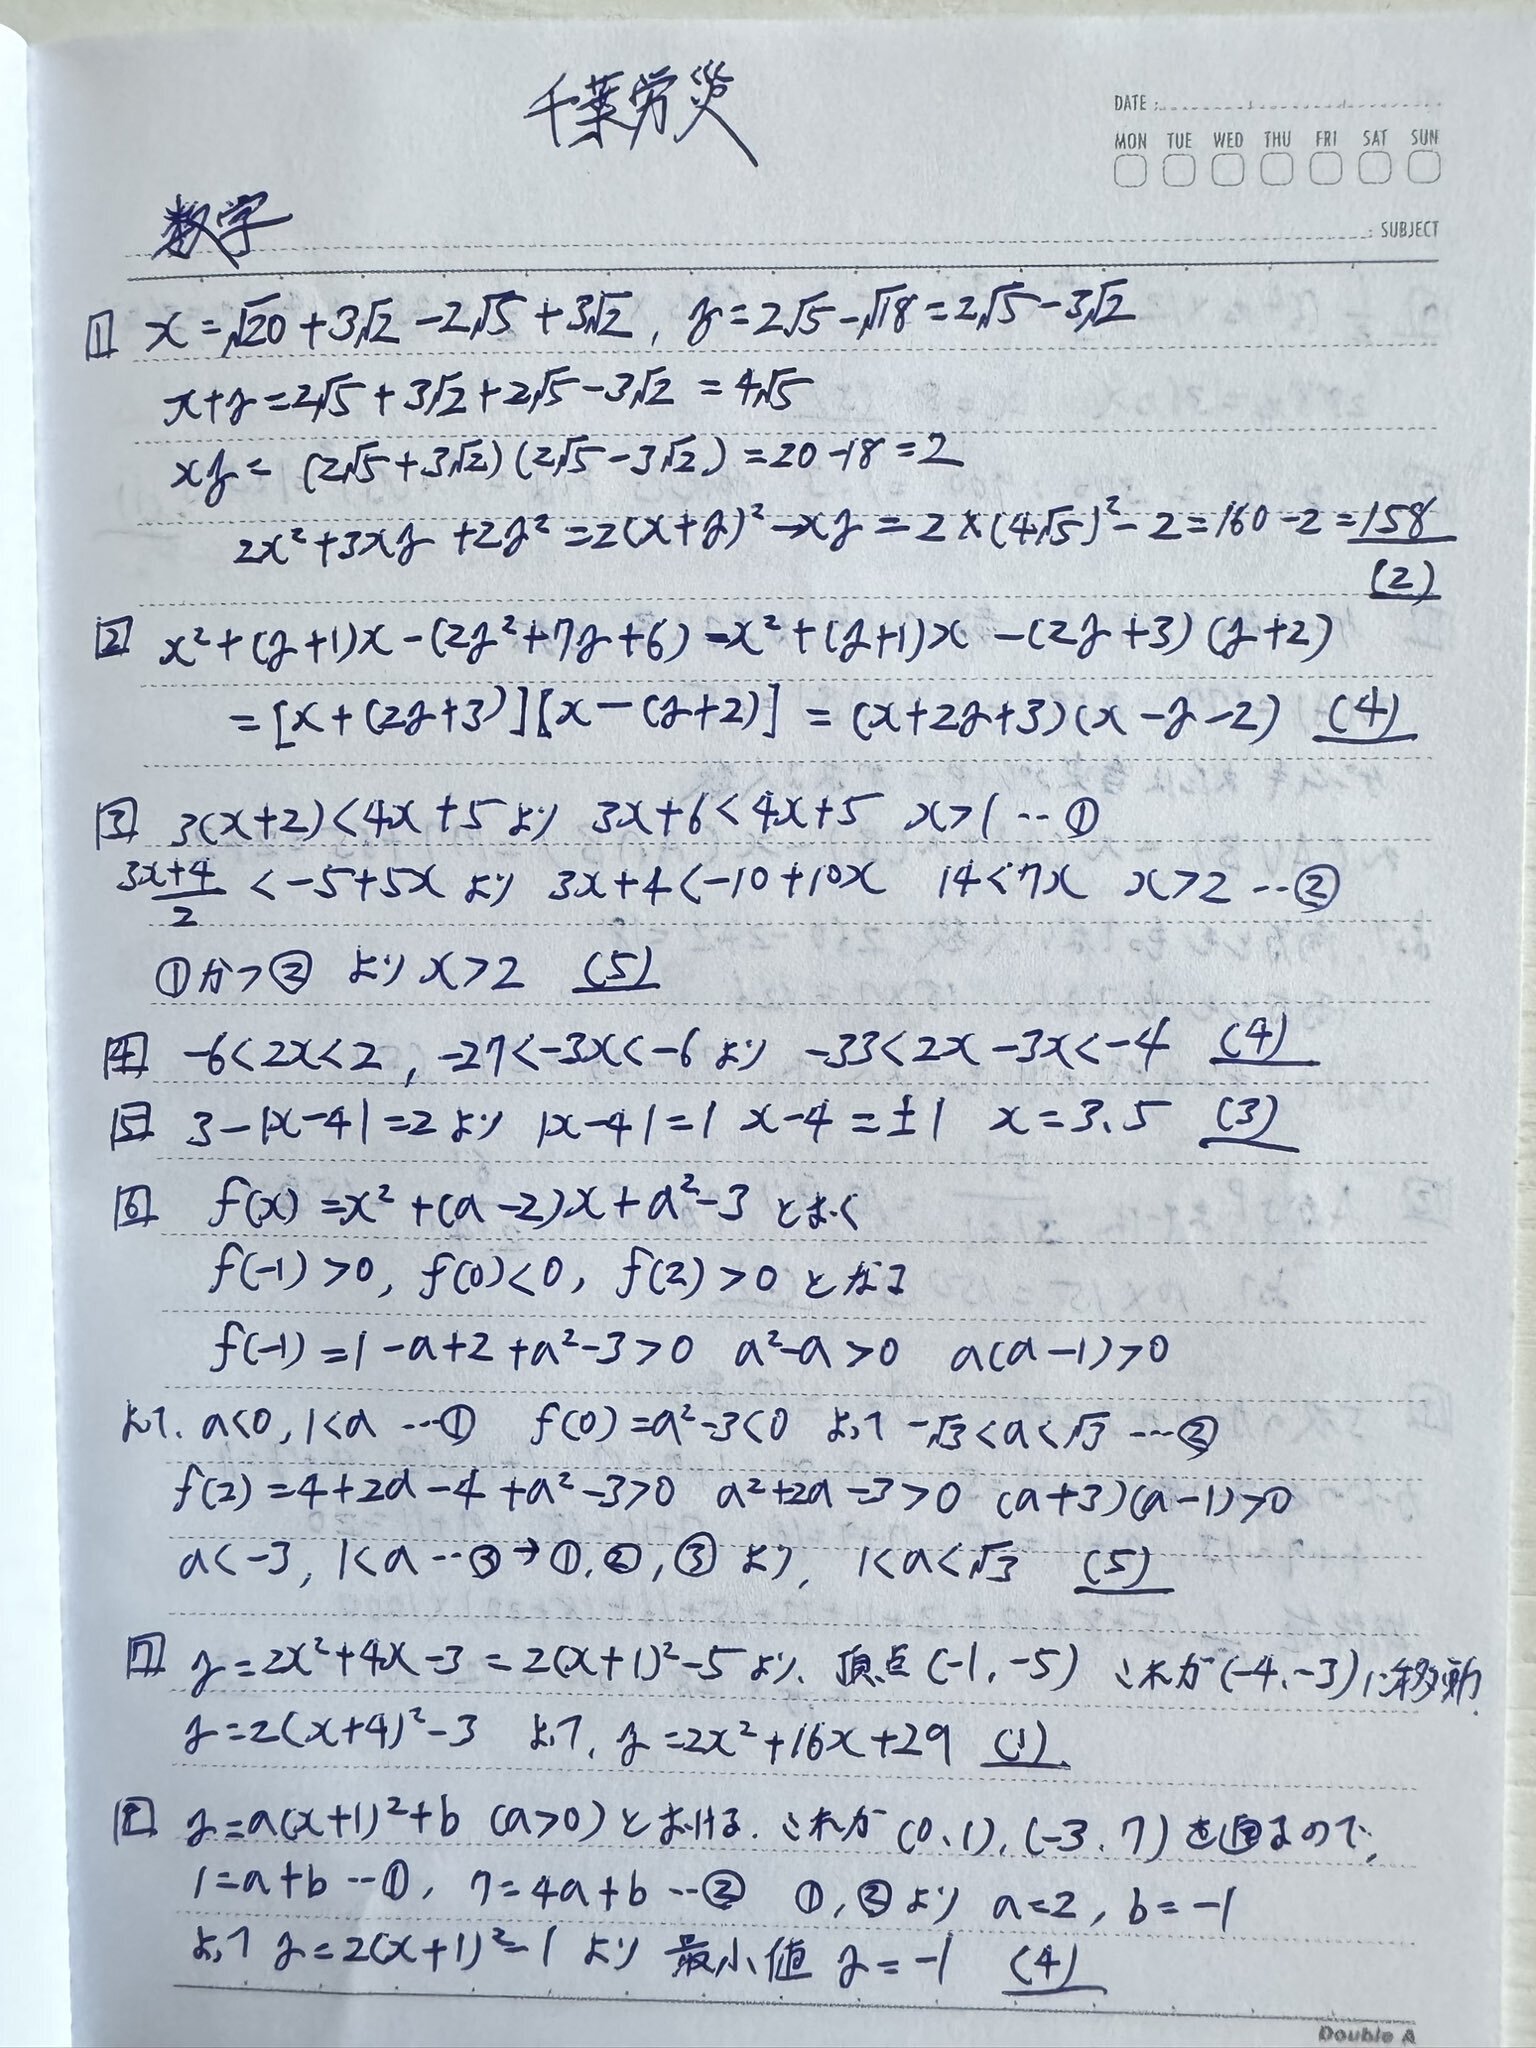 千葉労災
DATE:
MON TUE WED THU FRI SAT SUN
数学
: SUBJECT
1 x=√20+3√2-2√5+3√2, y=2√5-√18=2√5-3√2
x+y=2√5+3√2+2√5-3√2=4√5
xy=(2√5+3√2)(2√5-3√2)=20-18=2
2x²+3xy+2y²=2(x+y)²-xy=2×(4√5)²-2=160-2=158
(2)
2 x²+(y+1)x-(2y²+7y+6)=x²+(y+1)x-(2y+3)(y+2)
=[x+(2y+3)][x-(y+2)]=(x+2y+3)(x-y-2) (4)
3 3(x+2)<4x+5より 3x+6<4x+5 x>1…①
(3x+4)/2<-5+5xより 3x+4<-10+10x 14<7x x>2…②
①かつ②よりx>2 (5)
4 -6<2x<2, -27<-3x<-6より -33<2x-3x<-4 (4)
5 3-|x-4|=2より |x-4|=1 x-4=±1 x=3、5 (3)
6 f(x)=x²+(a-2)x+a²-3とおく
f(-1)>0, f(0)<0, f(2)>0となる
f(-1)=1-a+2+a²-3>0 a²-a>0 a(a-1)>0
よって、a<0, 1<a…① f(0)=a²-3<0 よって -√3<a<√3…②
f(2)=4+2a-4+a²-3>0 a²+2a-3>0 (a+3)(a-1)>0
a<-3, 1<a…③→①、②,③より、1<a<√3 (5)
7 y=2x²+4x-3=2(x+1)²-5より、頂点(-1、-5) これが(-4、-3)に移動
y=2(x+4)²-3 よって、y=2x²+16x+29 (1)
8 y=a(x+1)²+b (a>0)とおける. これが(0、1), (-3、7)を通るので、
1=a+b…①, 7=4a+b…② ①,②より a=2, b=-1
よって y=2(x+1)²-1より 最小値 y=-1 (4)
Double A